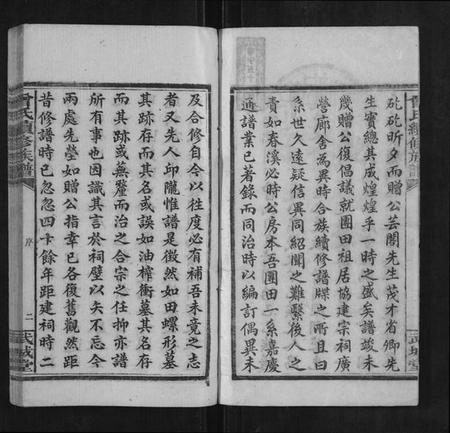 矻矻昕夕而贈公芸閣先生茂才省卿先
生實總其成煌煌乎一時之盛矣譜竣未
幾贈公復倡議就團田祖居協建宗祠廣
營廊舍為異時合族續修譜牒之所且曰
系世久遠疑信異同紹聞之難繫後人之
責如春溪必時公房本吾團田一系嘉慶
通譜業已著錄而同治時以編訂偶異未
及合修自今以往度必有補吾未竟之志
者又先人邱隴惟譜是徵然如田螺形墓
其跡存而其名或誤如油榨衝墓其名存
而其跡或蕪釐而治之合宗之任抑亦譜
所有事也因識其言於祠壁以矢不忘今
兩處先塋如贈公指韋已各復舊觀然距
昔修譜時已忽忽四十餘年距建祠時二
曾氏續修族譜
序
二
武城堂